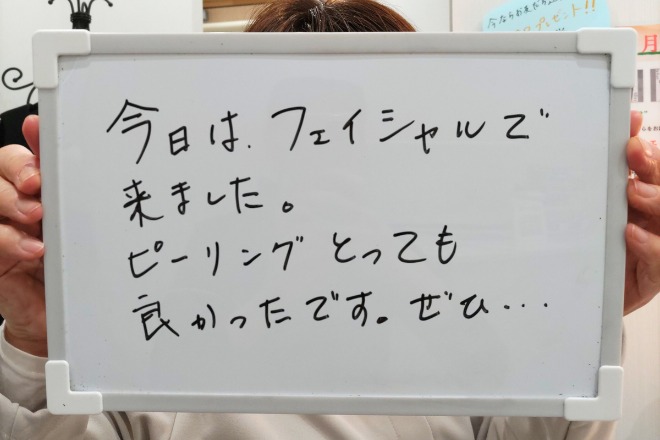 今なら
プレゼント!!
月
今日は、フェイシャルで
来ました。
ピーリングとっても
良かったです。ぜひ・・・